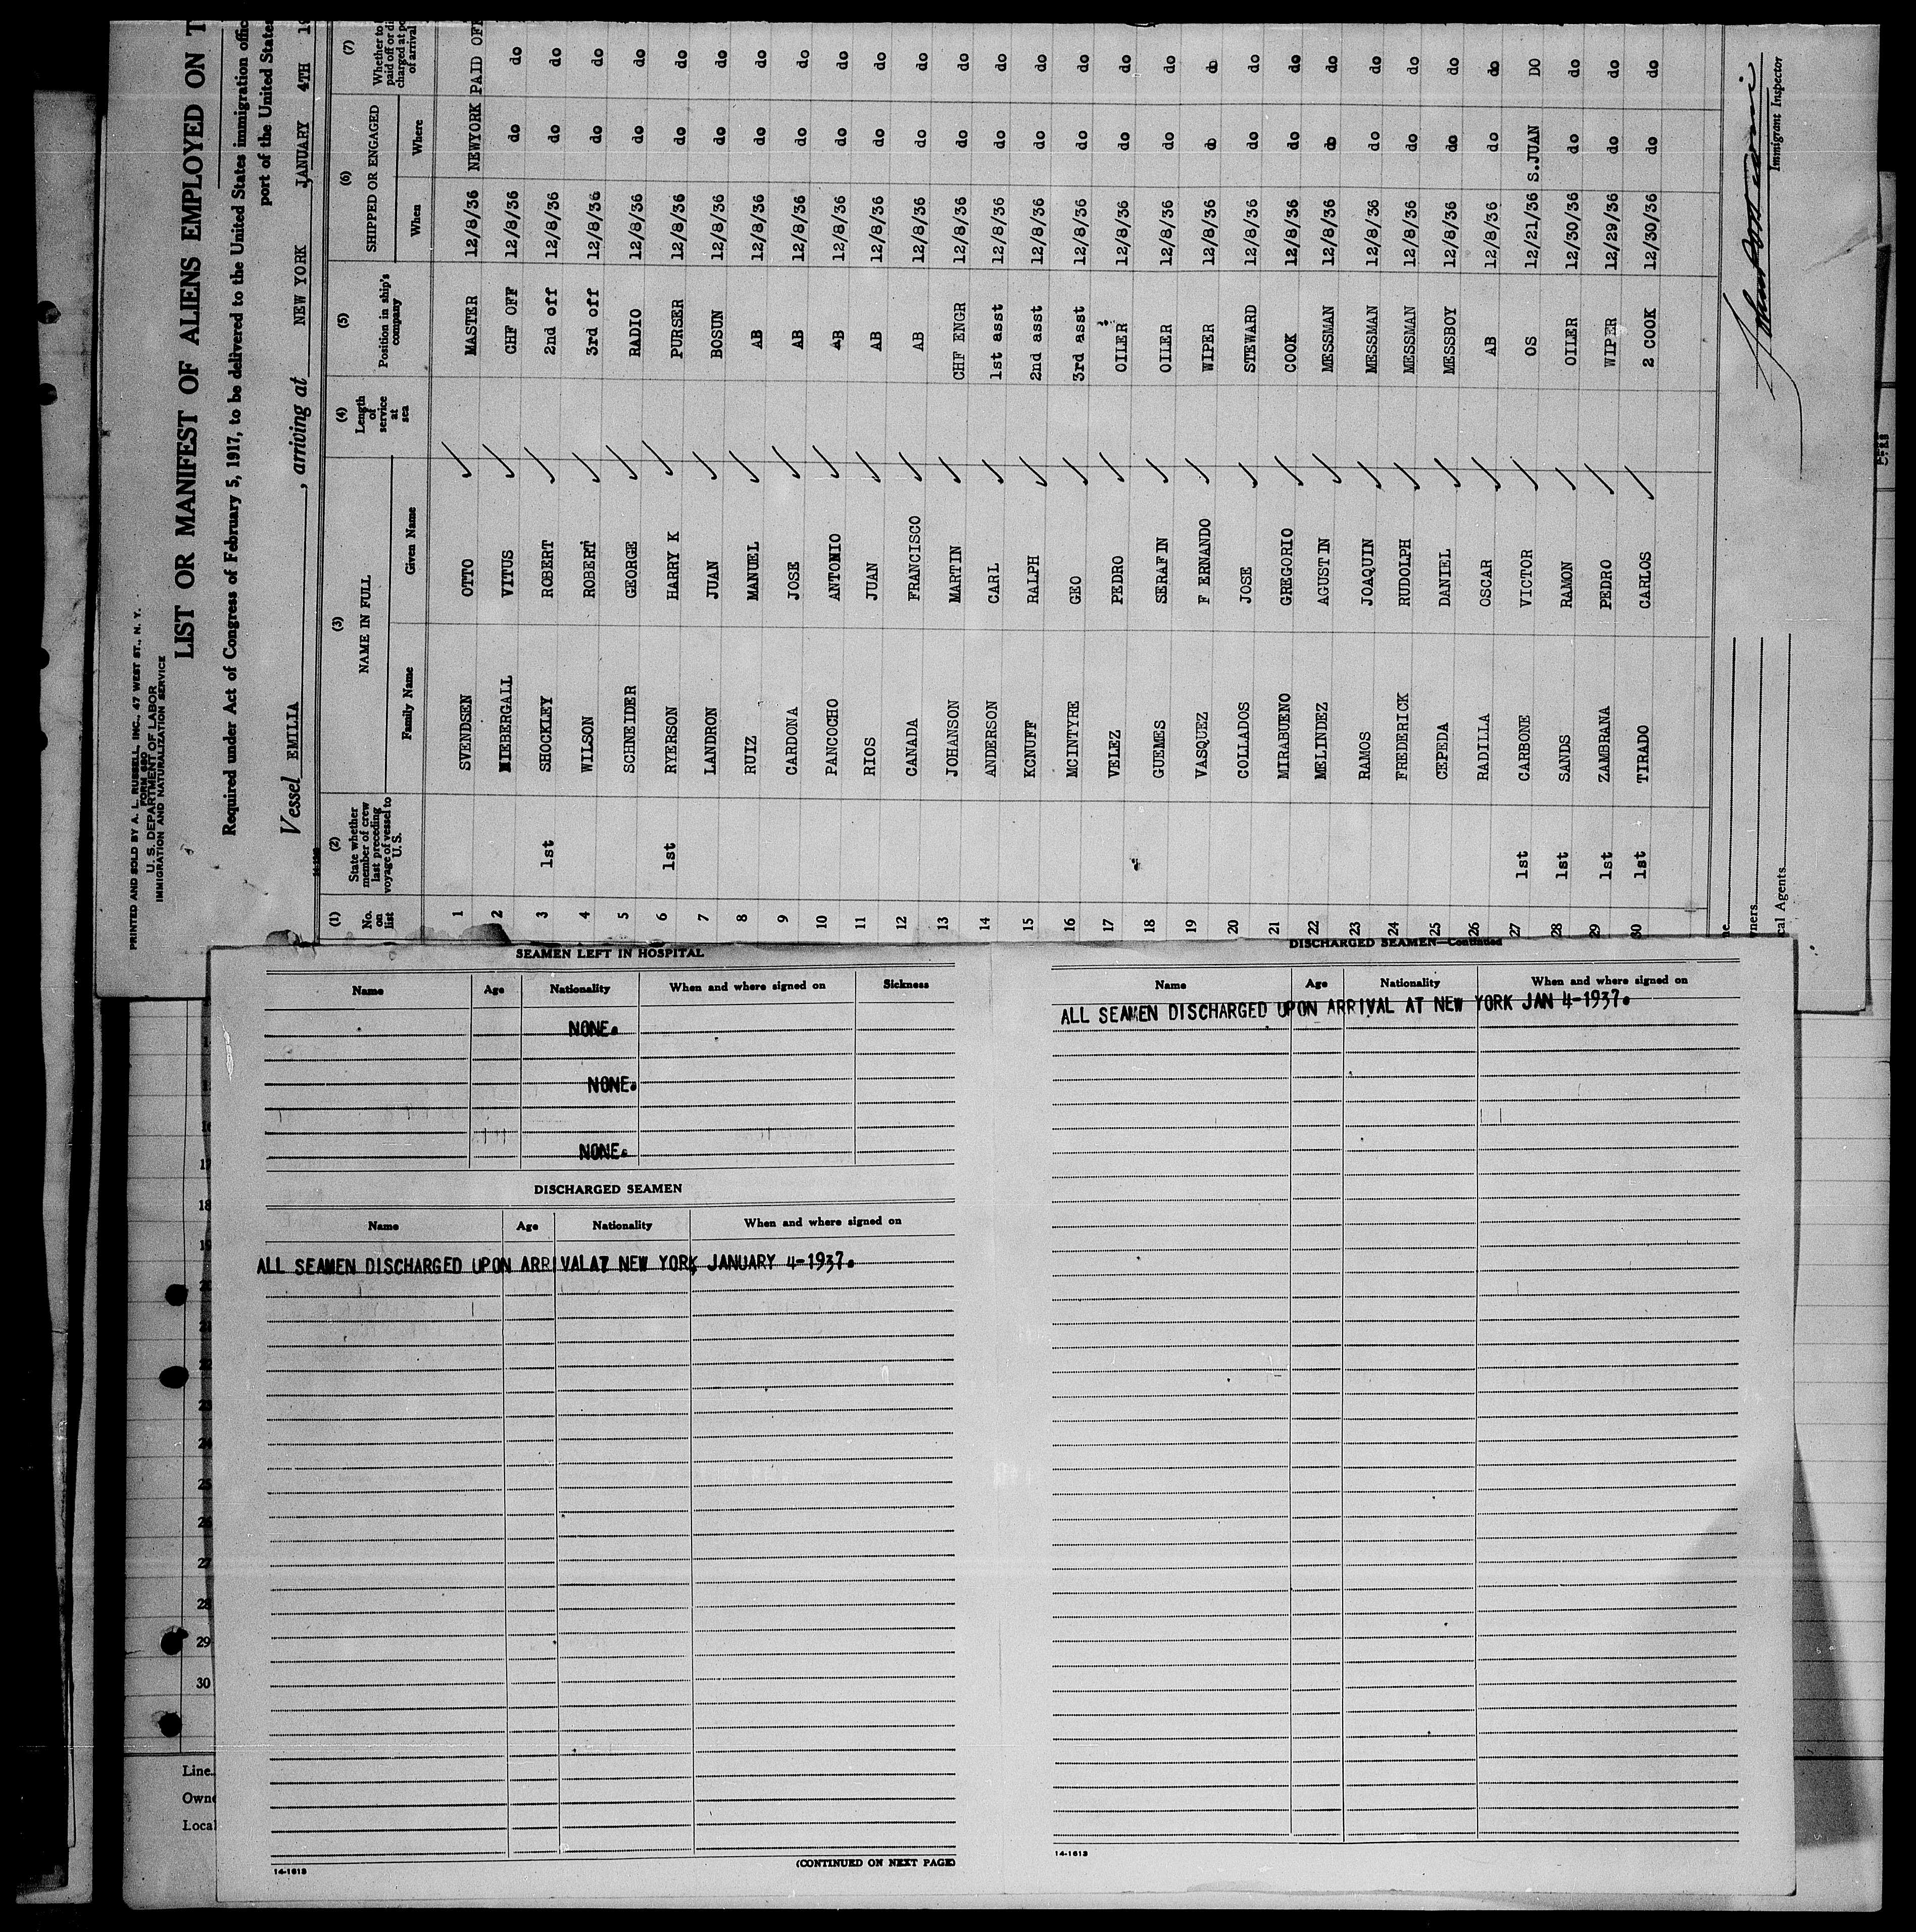 PRINTED AND SOLD BY A. L. RUSSELL, INC., 47 WEST ST., N. Y.
FORM 680
U. S. DEPARTMENT OF LABOR
IMMIGRATION AND NATURALIZATION SERVICE
LIST OR MANIFEST OF ALIENS EMPLOYED ON T
Required under Act of Congress of February 5, 1917, to be delivered to the United States immigration offic
port of the United State
Vessel EMILIA, arriving at NEW YORK JANUARY 4TH 19
(1) (2) (3) (4) (5) (6) (7)
No. on list State whether member of crew last preceding voyage of vessel to U. S. NAME IN FULL Length of service at sea Position in ship's company SHIPPED OR ENGAGED Whether to paid off or di charged at po of arrival
Family Name Given Name When Where
1 SVENDSEN OTTO MASTER 12/8/36 NEWYORK PAID OFF
2 NIEBERGALL VITUS CHF OFF 12/8/36 do do
3 1st SHOCKLEY ROBERT 2nd off 12/8/36 do do
4 WILSON ROBERT 3rd off 12/8/36 do do
5 SCHNEIDER GEORGE RADIO 12/8/36 do do
6 1st RYERSON HARRY K PURSER 12/8/36 do do
7 LANDRON JUAN BOSUN 12/8/36 do do
8 RUIZ MANUEL AB 12/8/36 do do
9 CARDONA JOSE AB 12/8/36 do do
10 PANCOCHO ANTONIO AB 12/8/36 do do
11 RIOS JUAN AB 12/8/36 do do
12 CANADA FRANCISCO AB 12/8/36 do do
13 JOHANSON MARTIN CHF ENGR 12/8/36 do do
14 ANDERSON CARL 1st asst 12/8/36 do do
15 KCNUFF RALPH 2nd asst 12/8/36 do do
16 MCINTYRE GEO 3rd asst 12/8/36 do do
17 VELEZ PEDRO OILER 12/8/36 do do
18 GUEMES SERAFIN OILER 12/8/36 do do
19 VASQUEZ F ERNANDO WIPER 12/8/36 do do
20 COLLADOS JOSE STEWARD 12/8/36 do do
21 MIRABUENO GREGORIO COOK 12/8/36 do do
22 MELINDEZ AGUSTIN MESSMAN 12/8/36 do do
23 RAMOS JOAQUIN MESSMAN 12/8/36 do do
24 FREDERICK RUDOLPH MESSMAN 12/8/36 do do
25 CEPEDA DANIEL MESSBOY 12/8/36 do do
26 RADILLA OSCAR AB 12/8/36 do do
27 1st CARBONE VICTOR OS 12/21/36 S.JUAN DO
28 1st SANDS RAMON OILER 12/30/36 do do
29 1st ZAMBRANA PEDRO WIPER 12/29/36 do do
30 1st TIRADO CARLOS 2 COOK 12/30/36 do do
ne
wners
cal Agents
Immigrant Inspector
SEAMEN LEFT IN HOSPITAL
Name Age Nationality When and where signed on Sickness
NONE.
NONE.
NONE.
DISCHARGED SEAMEN
Name Age Nationality When and where signed on
ALL SEAMEN DISCHARGED UPON ARRIVALAT NEW YORK JANUARY 4-1937.
14-1613
(CONTINUED ON NEXT PAGE)
DISCHARGED SEAMEN—Continued
Name Age Nationality When and where signed on
ALL SEAMEN DISCHARGED UPON ARRIVAL AT NEW YORK JAN 4-1937.
14-1613
17
18
19
20
21
22
23
24
25
26
27
28
29
30
Line
Owne
Local